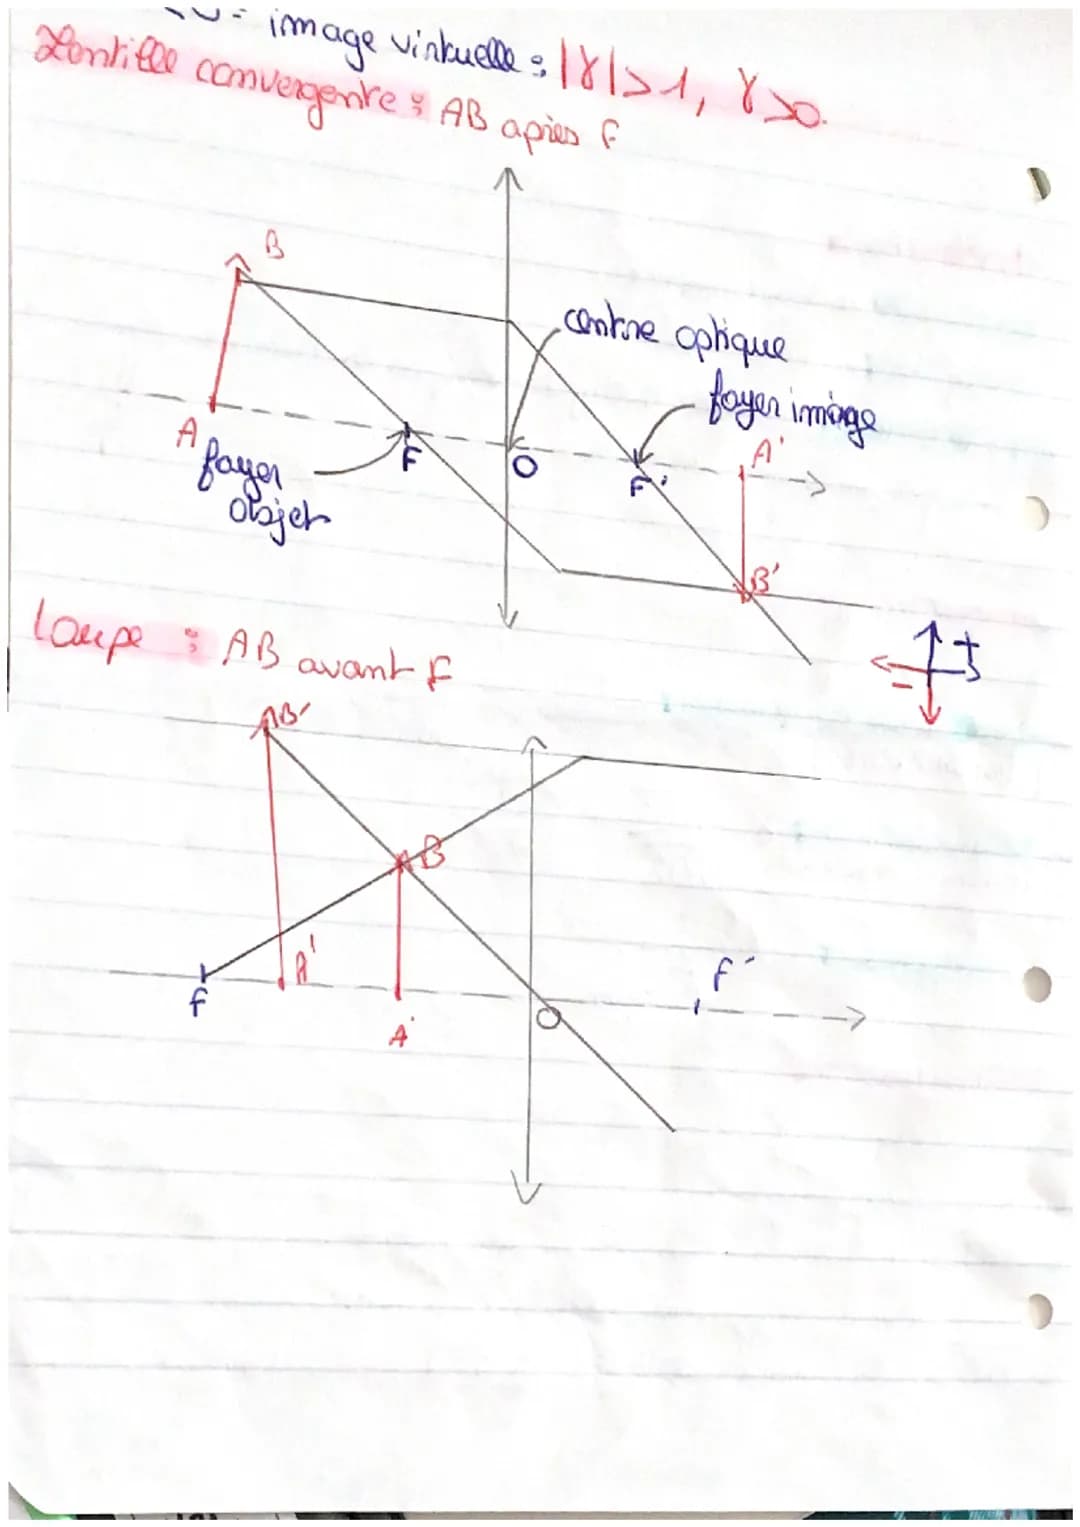 = image virtuelle : |γ|>1, γ>0.
Lentille convergente : AB après F
B
centre optique
foyer image
A
foyer
objet
F
O
F'
A'
B'
+
-
Loupe : AB avant F
B'
B
A'
F'
F
A
O